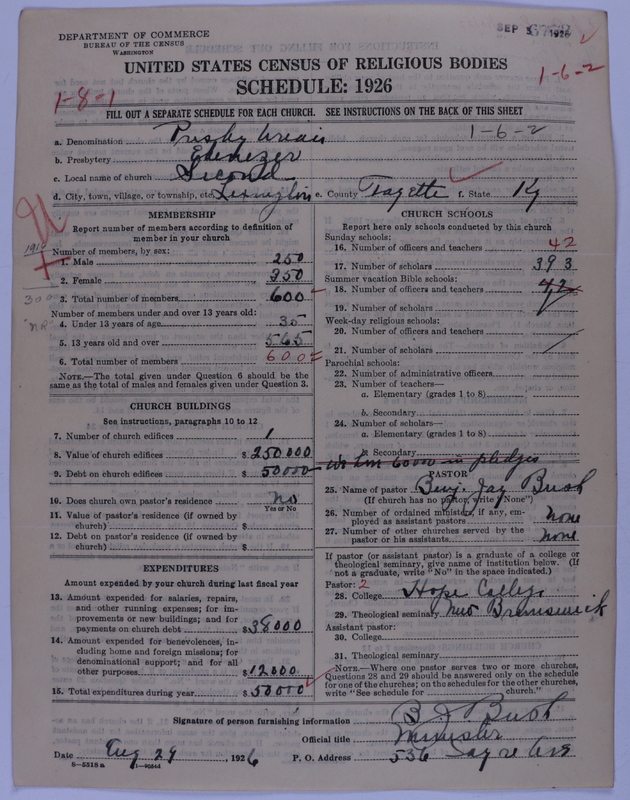 DEPARTMENT OF COMMERCE
BUREAU OF THE CENSUS
WASHINGTON
SEP 3 1926
UNITED STATES CENSUS OF RELIGIOUS BODIES
SCHEDULE: 1926
1-8-1
1-6-2
FILL OUT A SEPARATE SCHEDULE FOR EACH CHURCH. SEE INSTRUCTIONS ON THE BACK OF THIS SHEET
a. Denomination Presbyterian 1-6-2
b. Presbytery Ebenezer
c. Local name of church Second
d. City, town, village, or township, etc. Lexington e. County Fayette f. State Ky
MEMBERSHIP
Report number of members according to definition of
member in your church
Number of members, by sex:
1916
1. Male 250
2. Female 350
3. Total number of members 600
Number of members under and over 13 years old:
4. Under 13 years of age 35
5. 13 years old and over 565
6. Total number of members 600
NOTE.—The total given under Question 6 should be
same as the total of males and females given under Question 3.
CHURCH BUILDINGS
See instructions, paragraphs 10 to 12
7. Number of church edifices 1
8. Value of church edifices $ 250000
9. Debt on church edifices $ 50000 - We have 60000 in pledges
10. Does church own pastor's residence No
Yes or No
11. Value of pastor's residence (if owned by
church) $
12. Debt on pastor's residence (if owned by
church) $
EXPENDITURES
Amount expended by your church during last fiscal year
13. Amount expended for salaries, repairs,
and other running expenses; for im-
provements or new buildings; and for
payments on church debt $ 38000
14. Amount expended for benevolences, in-
cluding home and foreign missions; for
denominational support; and for all
other purposes $ 12000
15. Total expenditures during year $ 50000
CHURCH SCHOOLS
Report here only schools conducted by this church
Sunday schools:
16. Number of officers and teachers 42
17. Number of scholars 393
Summer vacation Bible schools:
18. Number of officers and teachers 42
19. Number of scholars
Week-day religious schools:
20. Number of officers and teachers
21. Number of scholars
Parochial schools:
22. Number of administrative officers
23. Number of teachers—
a. Elementary (grades 1 to 8)
b. Secondary
24. Number of scholars—
a. Elementary (grades 1 to 8)
b. Secondary
PASTOR
25. Name of pastor Benj. Jay Bush
(If church has no pastor, write "None")
26. Number of ordained ministers, if any, em-
ployed as assistant pastors None
27. Number of other churches served by the
pastor or his assistants None
If pastor (or assistant pastor) is a graduate of a college or
theological seminary, give name of institution below. (If
not a graduate, write "No" in the space indicated.)
Pastor: 2
28. College Hope College
29. Theological seminary New Brunswick
Assistant pastor:
30. College
31. Theological seminary
NOTE.—Where one pastor serves two or more churches,
Questions 28 and 29 should be answered only on the schedule
for one of the churches; on the schedules for the other churches,
write "See schedule for church."
Signature of person furnishing information B J Bush
Official title Minister
Date Aug 29, 1926 P. O. Address 536 Sayre Ave
8-5518a